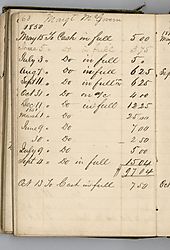 1850
May 15 To Cash in full 5 00
June 5 " Do in full 6 75
July 3 " Do in full 5 "
Aug 7 " Do in full 6 25
Sept 11 " Do in full 6 25
Oct 31 " Do on a/c 4 00
Dec 11 " Do in full 12 25
March 1 " Do 25 00
June 9 " Do 7 00
30 " Do 2 50
July 9 " Do 5 00
Sept 11 " Do in full 15 04
Oct 13 To Cash in full 7 50